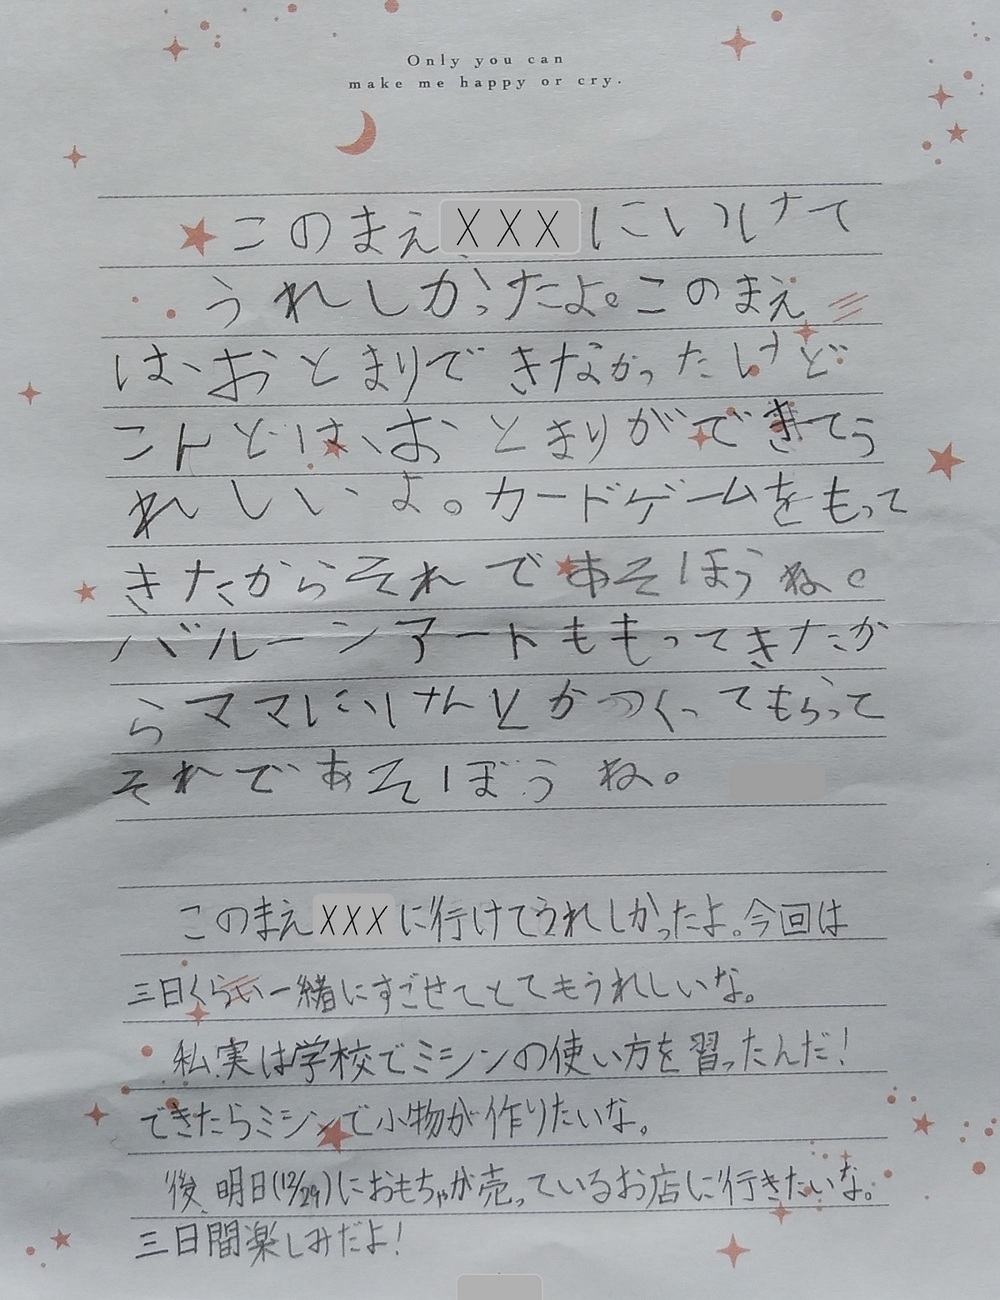 Only you can
make me happy or cry.
このまえXXXにいけて
うれしかったよ。このまえ
は、おとまりできなかったけど
こんどは、おとまりができてう
れしいよ。カードゲームをもって
きたからそれであそぼうね。
バルーンアートももってきたか
らママにけんとかつくってもらって
それであそぼうね。
このまえXXXに行けてうれしかったよ。今回は
三日くらい一緒にすごせてとてもうれしいな。
私実は学校でミシンの使い方を習ったんだ!
できたらミシンで小物が作りたいな。
後、明日(12/29)におもちゃが売っているお店に行きたいな。
三日間楽しみだよ!